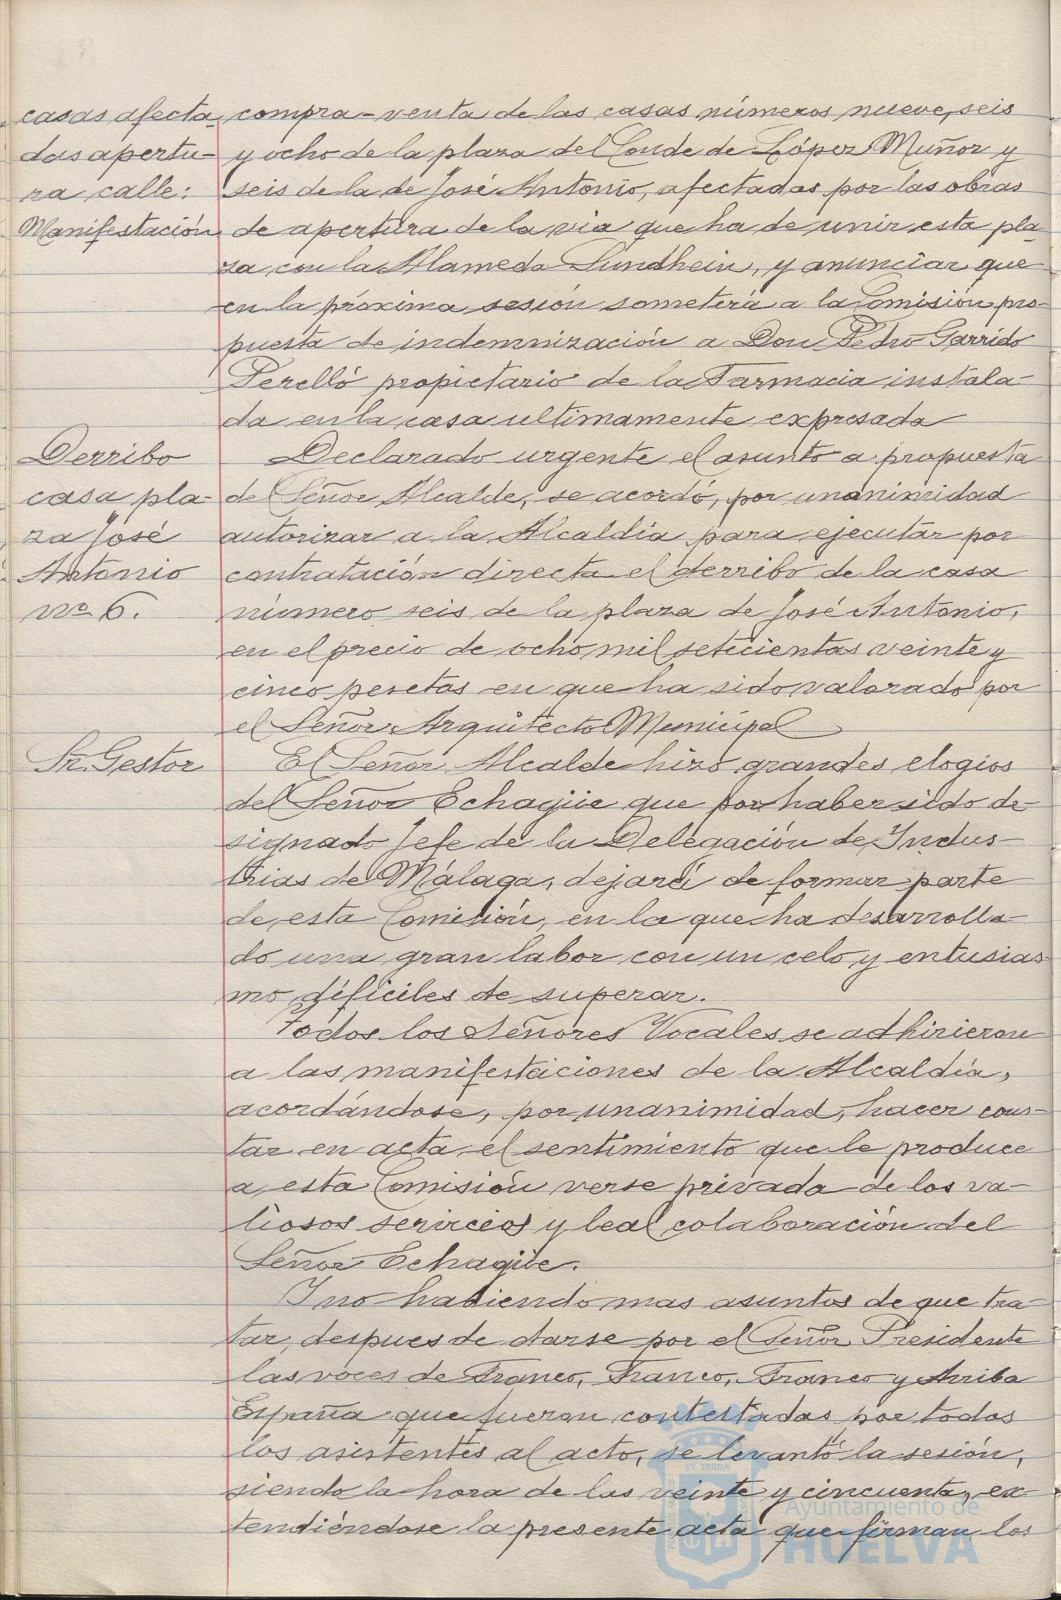 casas afecta-
das apertu-
ra calle:
Manifestación
compra-venta de las casas números nueve, seis
y ocho de la plaza del Conde de López Muñoz y
seis de la de José Antonio, afectadas por las obras
de apertura de la vía que ha de unir esta pla-
za con la Alameda Sundhein, y anunciar que
en la próxima sesión someterá a la Comisión pro-
puesta de indemnización a Don Pedro Garrido
Perelló propietario de la Farmacia instala-
da en la casa ultimamente expresada
Derribo
casa pla-
za José
Antonio
nº 6.
Declarado urgente el asunto a propuesta
del Señor Alcalde, se acordó, por unanimidad
autorizar a la Alcaldía para ejecutar por
contratación directa el derribo de la casa
número seis de la plaza de José Antonio,
en el precio de ocho mil setecientas veinte y
cinco pesetas en que ha sido valorado por
el Señor Arquitecto Municipal
Sr. Gestor
El Señor Alcalde hizo grandes elogios
del Señor Echagüe que por haber sido de-
signado Jefe de la Delegación de Indus-
trias de Málaga, dejará de formar parte
de esta Comisión, en la que ha desarrolla-
do una gran labor con un celo y entusias-
mo difíciles de superar.
Todos los Señores Vocales se adhirieron
a las manifestaciones de la Alcaldía,
acordándose, por unanimidad, hacer cons-
tar en acta el sentimiento que le produce
a esta Comisión verse privada de los va-
liosos servicios y leal colaboración del
Señor Echagüe.
Y no habiendo mas asuntos de que tra-
tar, despues de darse por el Señor Presidente
las voces de Franco, Franco, Franco y Arriba
España que fueron contestadas por todos
los asistentes al acto, se levantó la sesión,
siendo la hora de las veinte y cincuenta, ex-
tendiéndose la presente acta que firman los
Ayuntamiento de
HUELVA